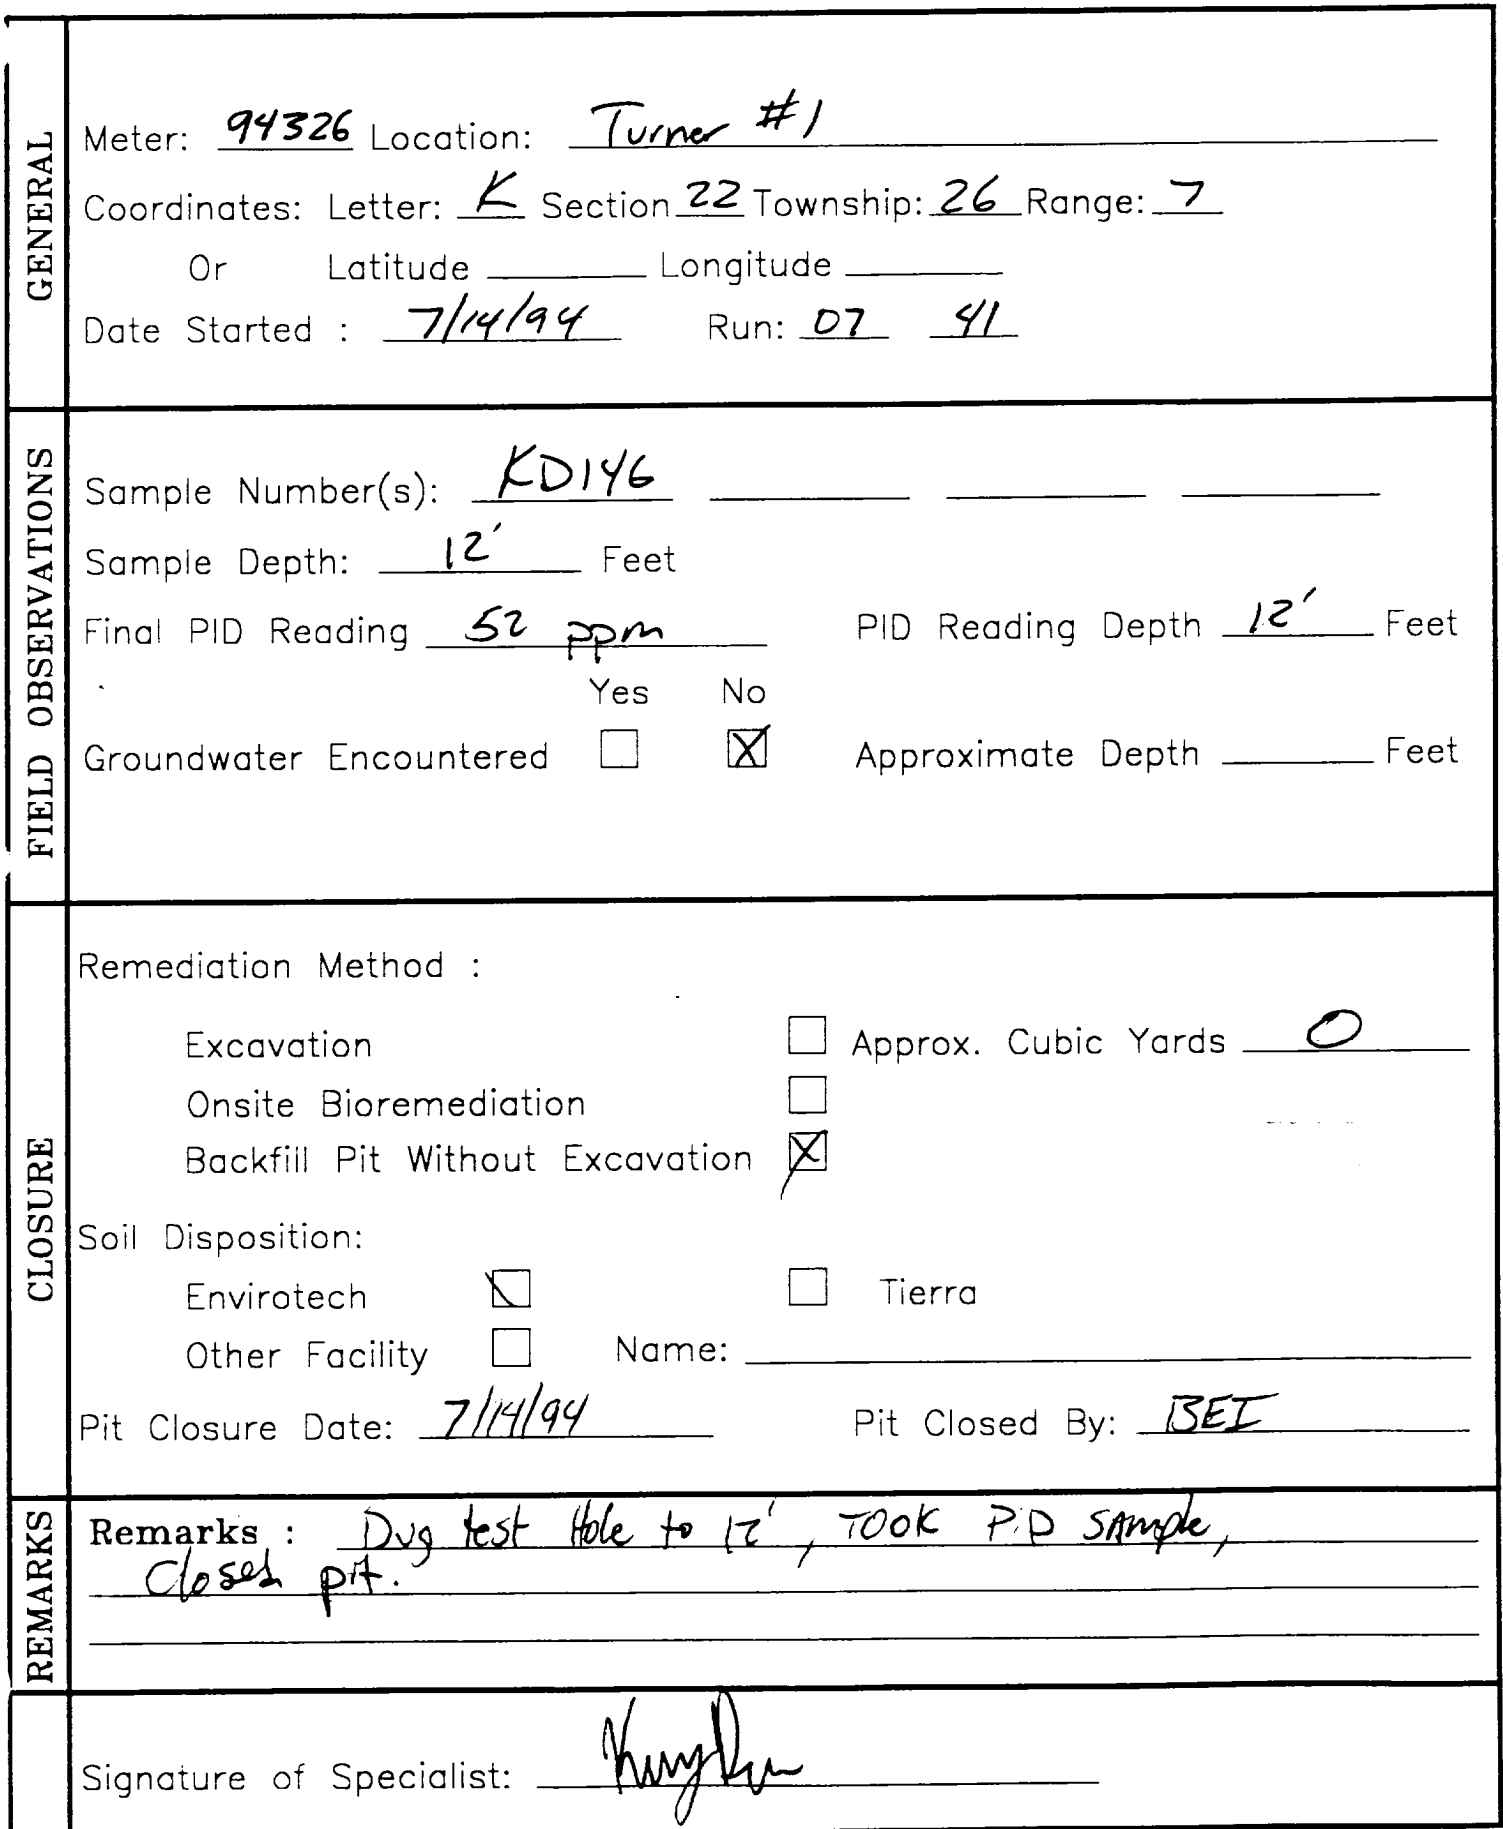 GENERAL
Meter: 94326 Location: Turner #1
Coordinates: Letter: K Section 22 Township: 26 Range: 7
Or Latitude Longitude
Date Started : 7/14/94 Run: 07 41
FIELD OBSERVATIONS
Sample Number(s): KD146
Sample Depth: 12' Feet
Final PID Reading 52 ppm PID Reading Depth 12' Feet
Yes No
Groundwater Encountered X Approximate Depth Feet
CLOSURE
Remediation Method :
Excavation Approx. Cubic Yards 0
Onsite Bioremediation
Backfill Pit Without Excavation X
Soil Disposition:
Envirotech Tierra
Other Facility Name:
Pit Closure Date: 7/14/94 Pit Closed By: BEI
REMARKS
Remarks : Dug test Hole to 12', TOOK PID SAmple,
Closed pit.
Signature of Specialist: